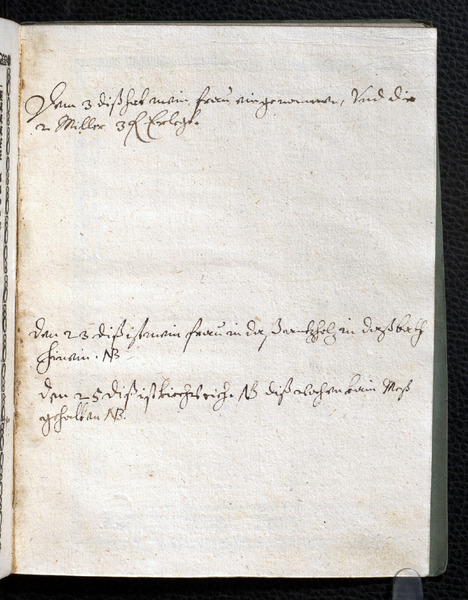 Den 3 diß hat mein frau eingenommen, Und die
2 Müller 3 fl Erlegt.
den 23 diß ist mein frau in da, in daß bath
hinein. NB
den 25 diß ist kirchweich. NB diß wochen kain Meß
gehalten NB.